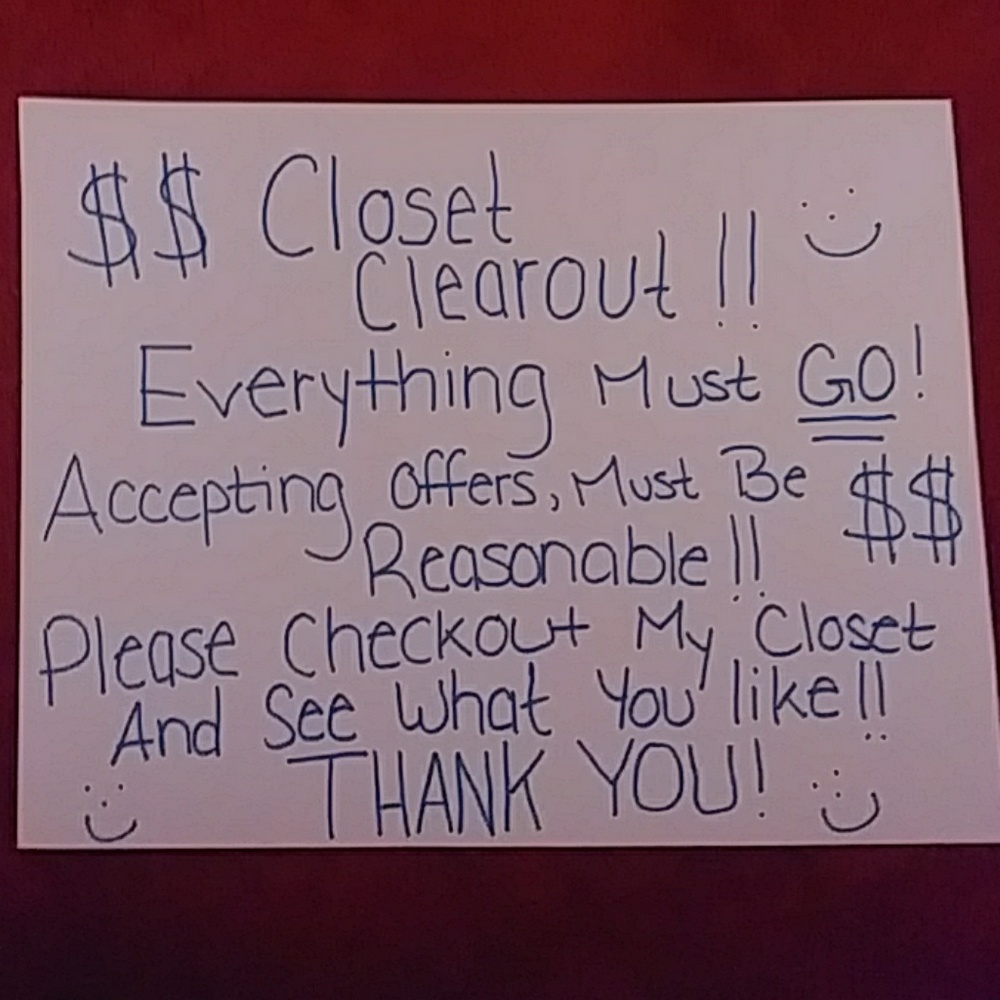 $$ Closet
Clearout !!
Everything Must GO!
Accepting Offers, Must Be $$
Reasonable !!
Please Checkout My Closet
And See What You like !!
THANK YOU!